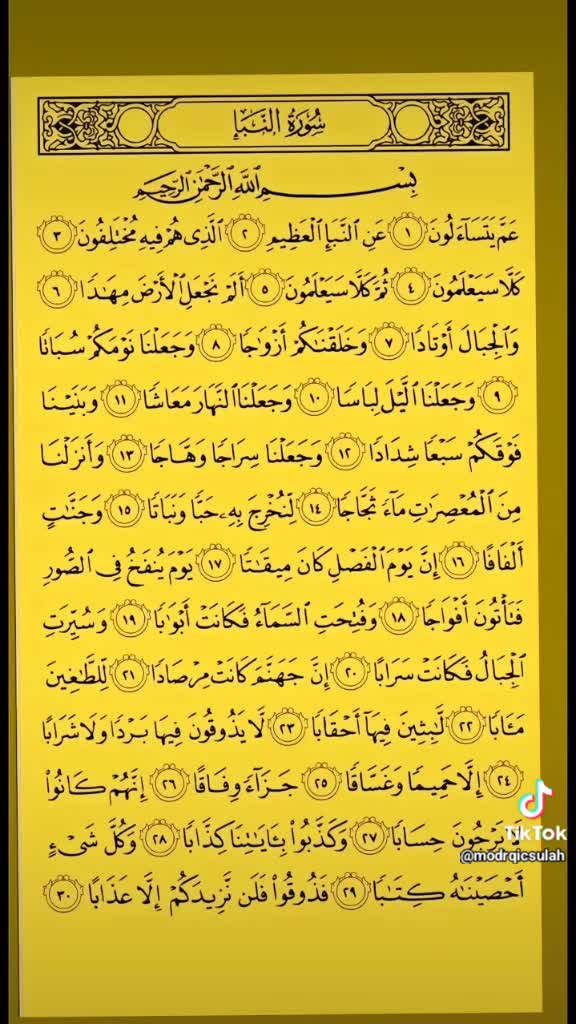 سُورَةُ النَّبَإِ
بِسْمِ اللَّهِ الرَّحْمَٰنِ الرَّحِيمِ
عَمَّ يَتَسَآءَلُونَ ١ عَنِ النَّبَإِ الْعَظِيمِ ٢ الَّذِى هُمْ فِيهِ مُخْتَلِفُونَ ٣
كَلَّا سَيَعْلَمُونَ ٤ ثُمَّ كَلَّا سَيَعْلَمُونَ ٥ أَلَمْ نَجْعَلِ الْأَرْضَ مِهَٰدًا ٦
وَالْجِبَالَ أَوْتَادًا ٧ وَخَلَقْنَٰكُمْ أَزْوَٰجًا ٨ وَجَعَلْنَا نَوْمَكُمْ سُبَاتًا
٩ وَجَعَلْنَا الَّيْلَ لِبَاسًا ١٠ وَجَعَلْنَا النَّهَارَ مَعَاشًا ١١ وَبَنَيْنَا
فَوْقَكُمْ سَبْعًا شِدَادًا ١٢ وَجَعَلْنَا سِرَاجًا وَهَّاجًا ١٣ وَأَنزَلْنَا
مِنَ الْمُعْصِرَٰتِ مَآءً ثَجَّاجًا ١٤ لِّنُخْرِجَ بِهِۦ حَبًّا وَنَبَاتًا ١٥ وَجَنَّٰتٍ
أَلْفَافًا ١٦ إِنَّ يَوْمَ الْفَصْلِ كَانَ مِيقَٰتًا ١٧ يَوْمَ يُنفَخُ فِى الصُّورِ
فَتَأْتُونَ أَفْوَاجًا ١٨ وَفُتِحَتِ السَّمَآءُ فَكَانَتْ أَبْوَٰبًا ١٩ وَسُيِّرَتِ
الْجِبَالُ فَكَانَتْ سَرَابًا ٢٠ إِنَّ جَهَنَّمَ كَانَتْ مِرْصَادًا ٢١ لِّلطَّٰغِينَ
مَـَٔابًا ٢٢ لَّٰبِثِينَ فِيهَآ أَحْقَابًا ٢٣ لَّا يَذُوقُونَ فِيهَا بَرْدًا وَلَا شَرَابًا
٢٤ إِلَّا حَمِيمًا وَغَسَّاقًا ٢٥ جَزَآءً وِفَاقًا ٢٦ إِنَّهُمْ كَانُوا۟
لَا يَرْجُونَ حِسَابًا ٢٧ وَكَذَّبُوا۟ بِـَٔايَٰتِنَا كِذَّابًا ٢٨ وَكُلَّ شَىْءٍ
أَحْصَيْنَٰهُ كِتَٰبًا ٢٩ فَذُوقُوا۟ فَلَن نَّزِيدَكُمْ إِلَّا عَذَابًا ٣٠
TikTok
@modrqicsulah